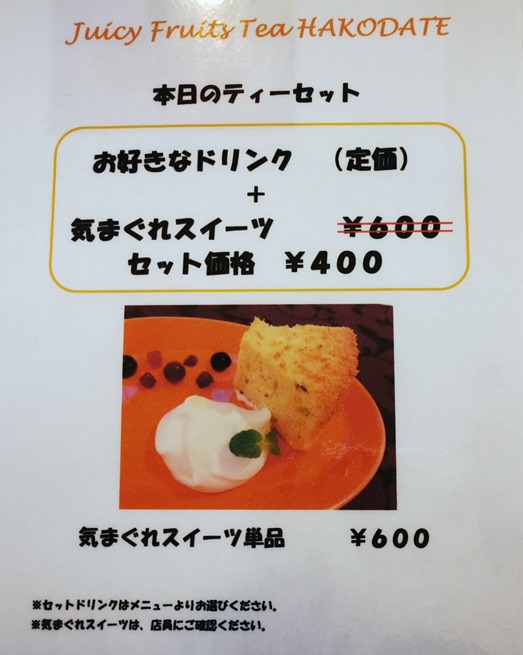 Juicy Fruits Tea HAKODATE
本日のティーセット
お好きなドリンク （定価）
＋
気まぐれスイーツ ￥６００
セット価格 ￥４００
気まぐれスイーツ単品 ￥６００
※セットドリンクはメニューよりお選びください。
※気まぐれスイーツは、店員にご確認ください。